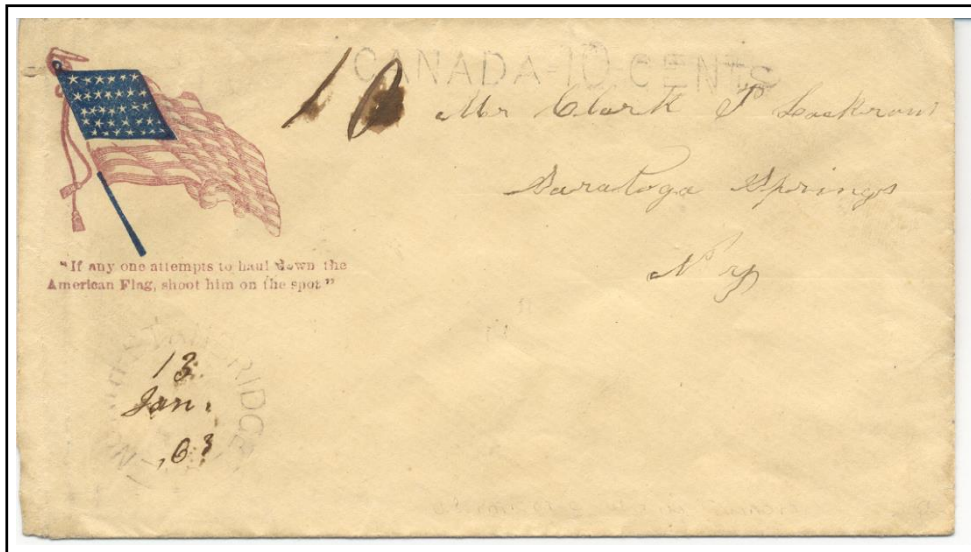 CANADA-10-CENTS
10
Mr Clark
Saratoga Springs
N Y
"If any one attempts to haul down the
American Flag, shoot him on the spot"
RIDGE
13
Jan.
,63